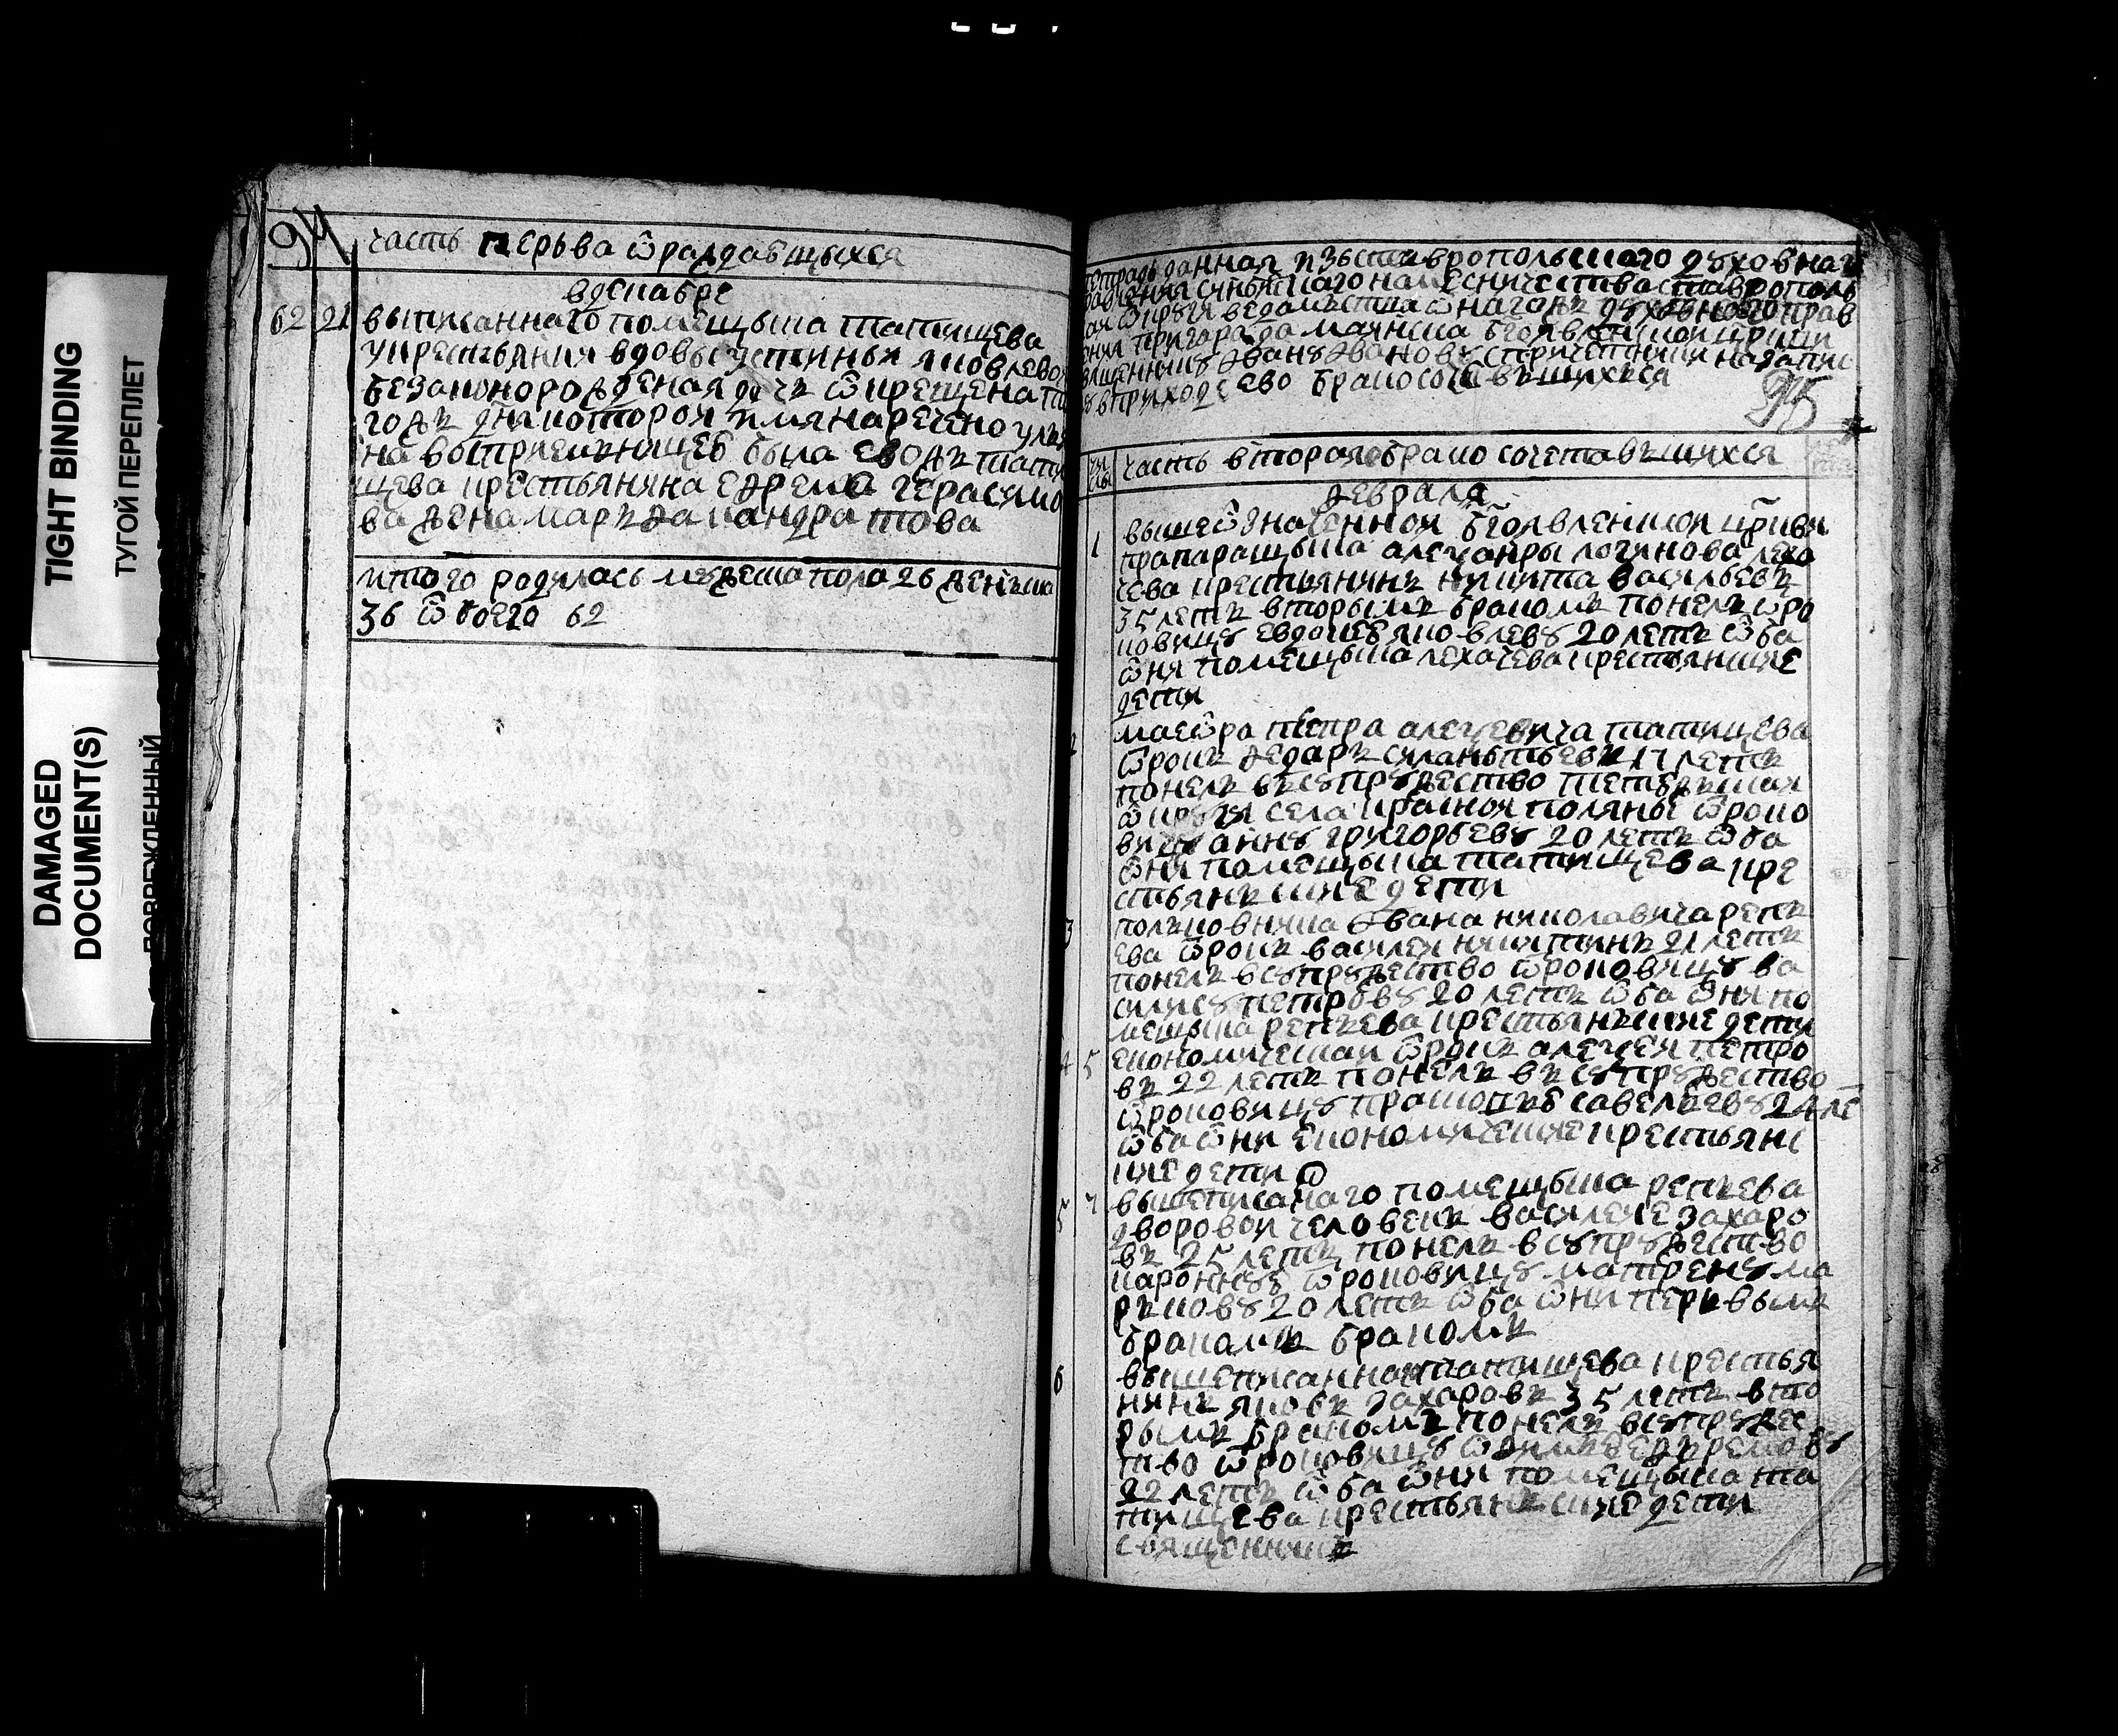 TIGHT BINDING
ТУГОЙ ПЕРЕПЛЕТ
DAMAGED
DOCUMENT(S)
ПОВРЕЖДЕННЫЙ
94
часть перьва ѿраждавщыхся
вдекабре
62 21 выписаннаго помещыка татищева
укрестьянки вдовы устиньи яковлево
безаконорожденая дочь ѿкрещена та
гожъ дни которой имянаречено ульян
на восприемьницеѣ была евожъ тати
щева крестьянина ефрема герасимо
ва жена марѳа кандратова
итого родилась мужеска пола 26 женъска
36 ѡбоего 62
тетрадь данная изъставропольскаго духовнаго
правления синьбирскаго намесничества ставрополь
скои ѡкруги ведомства ѡнагожъ духовнаго прав
ления пригарода маиньска бгоявленской цркви
священнику ивану иванову спричетники назапис
ку вприходе ево бракосочевъшихься
95
часть вторая ѡбрако сочетавъшихся
февраля
1 вышеѡзначенной бгоявленской цркви
прапаращыка алеѯандры логинова леха
чева крестьянинъ никита васильевъ
35 летъ вторымъ бракомъ понелъ ѡтро
ковицу евдокеѣ яковлеву 20 летъ ѡба
ѡни помещыка лехачева крестьянские
дети
2 маеѡра петра алеѯевича татищева
ѡтрокъ федаръ силаньтьевъ 17 летъ
понелъ въсупружество тетюжъской
ѡкруги села красной поляны ѡтроко
вицу анну григорьеву 20 летъ ѡба
ѡни помещыка татищева кре
стьянъские дети
3 полъковника ивана николавича репь
ева ѡтрокъ василей никитинъ 21 летъ
понелъ всупружество ѡтроковицу ва
силису петрову 20 летъ ѡба ѡни по
мещыка репьева крестьянъские дети
4 5 економической ѡтрокъ алеѯей петро
въ 22 летъ понелъ въсупружество
ѡтроковицу прасковьѣ савельеву 24 ле
ѡба ѡни економические крестьянс
кие дети
5 7 вышеписанаго помещыка репьева
дворовой человекъ василей захаро
въ 25 летъ понелъ всупружество
ѡтроковицу матрену ма
ръкову 20 летъ ѡба ѡни перьвымъ
бракамъ бракомъ
6 вышеписанной татищева крестья
нинъ яковъ захаровъ 35 летъ вто
рымъ бракомъ понелъ всупружес
тво ѡтроковицу ефремову
22 летъ ѡба ѡни помещыка та
тищева крестьянъские дети
священникъ